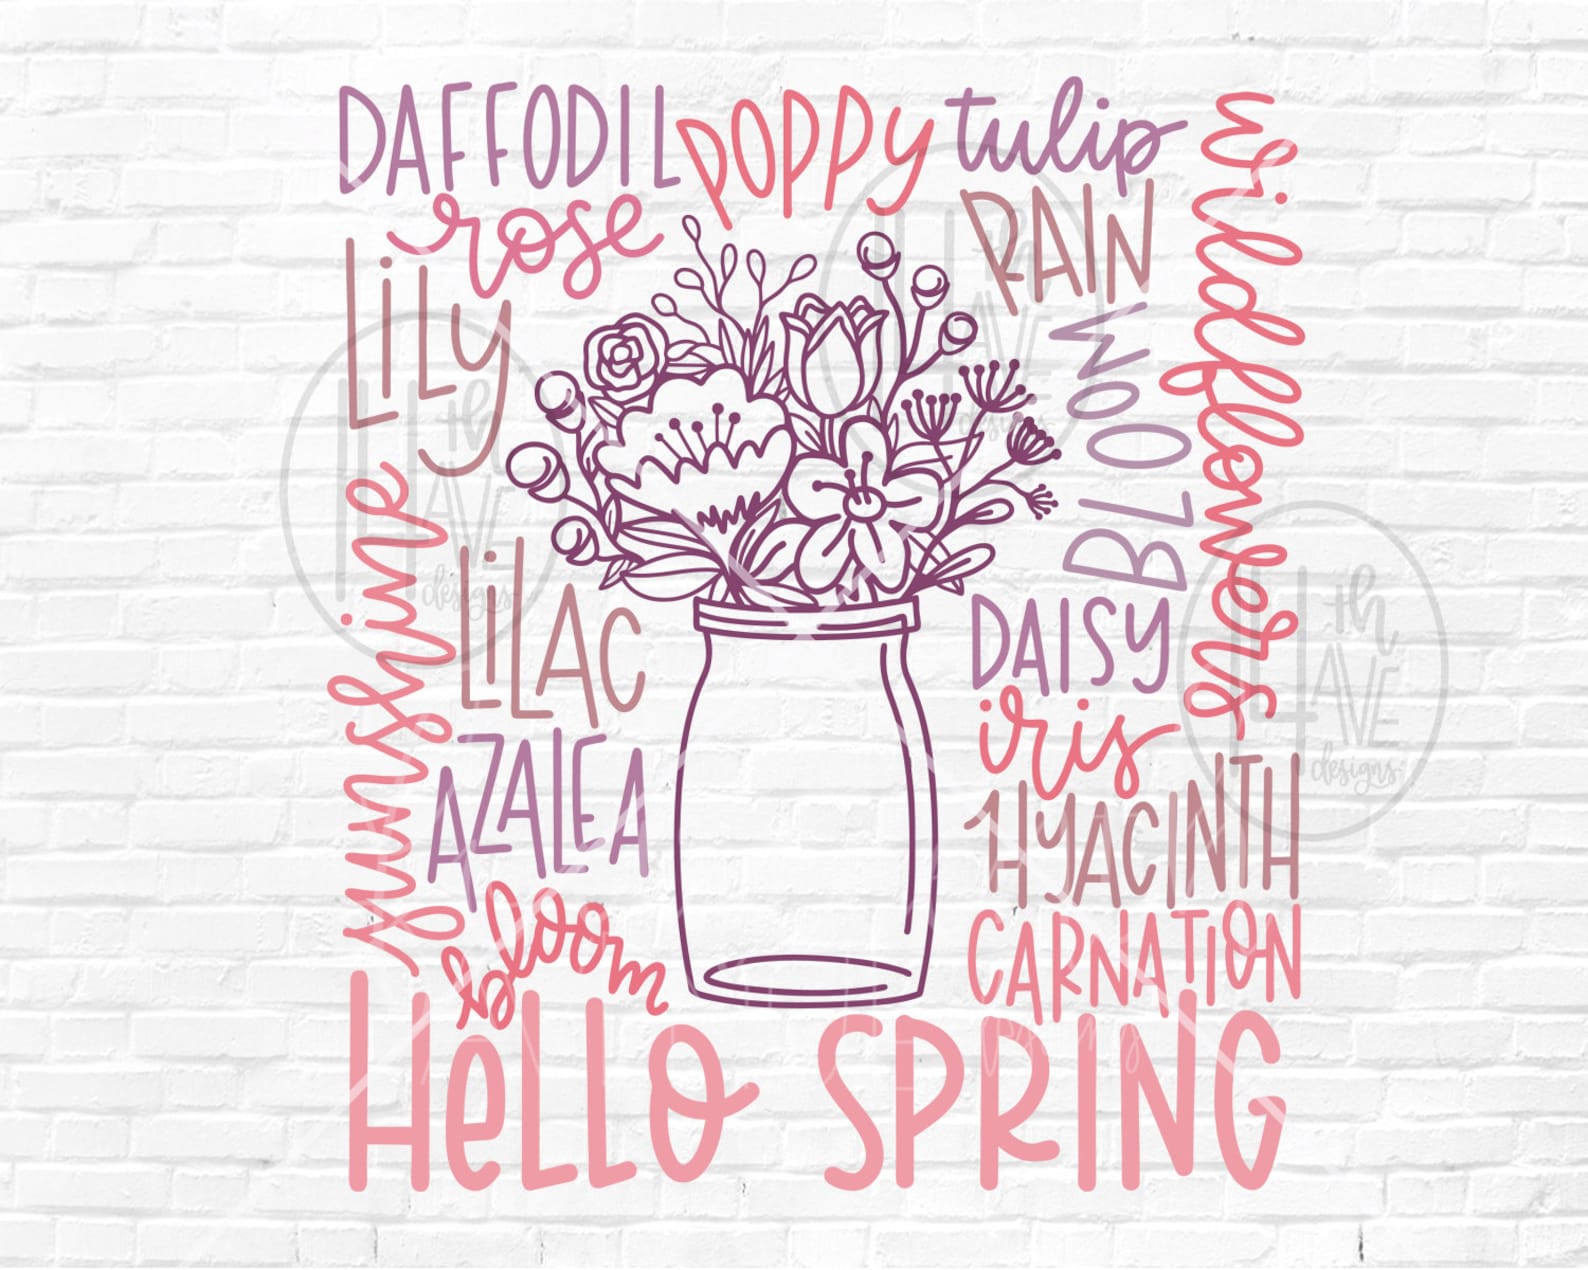 DAFFODIL
POPPY
tulip
wildflowers
rose
RAIN
LiLy
BLOOM
sunshine
LiLAC
DAISY
iris
AZALEA
HYACINTH
bloom
CARNATiON
HeLLO SPRING
4th
AVE
designs
4th
AVE
designs
4th
AVE
designs